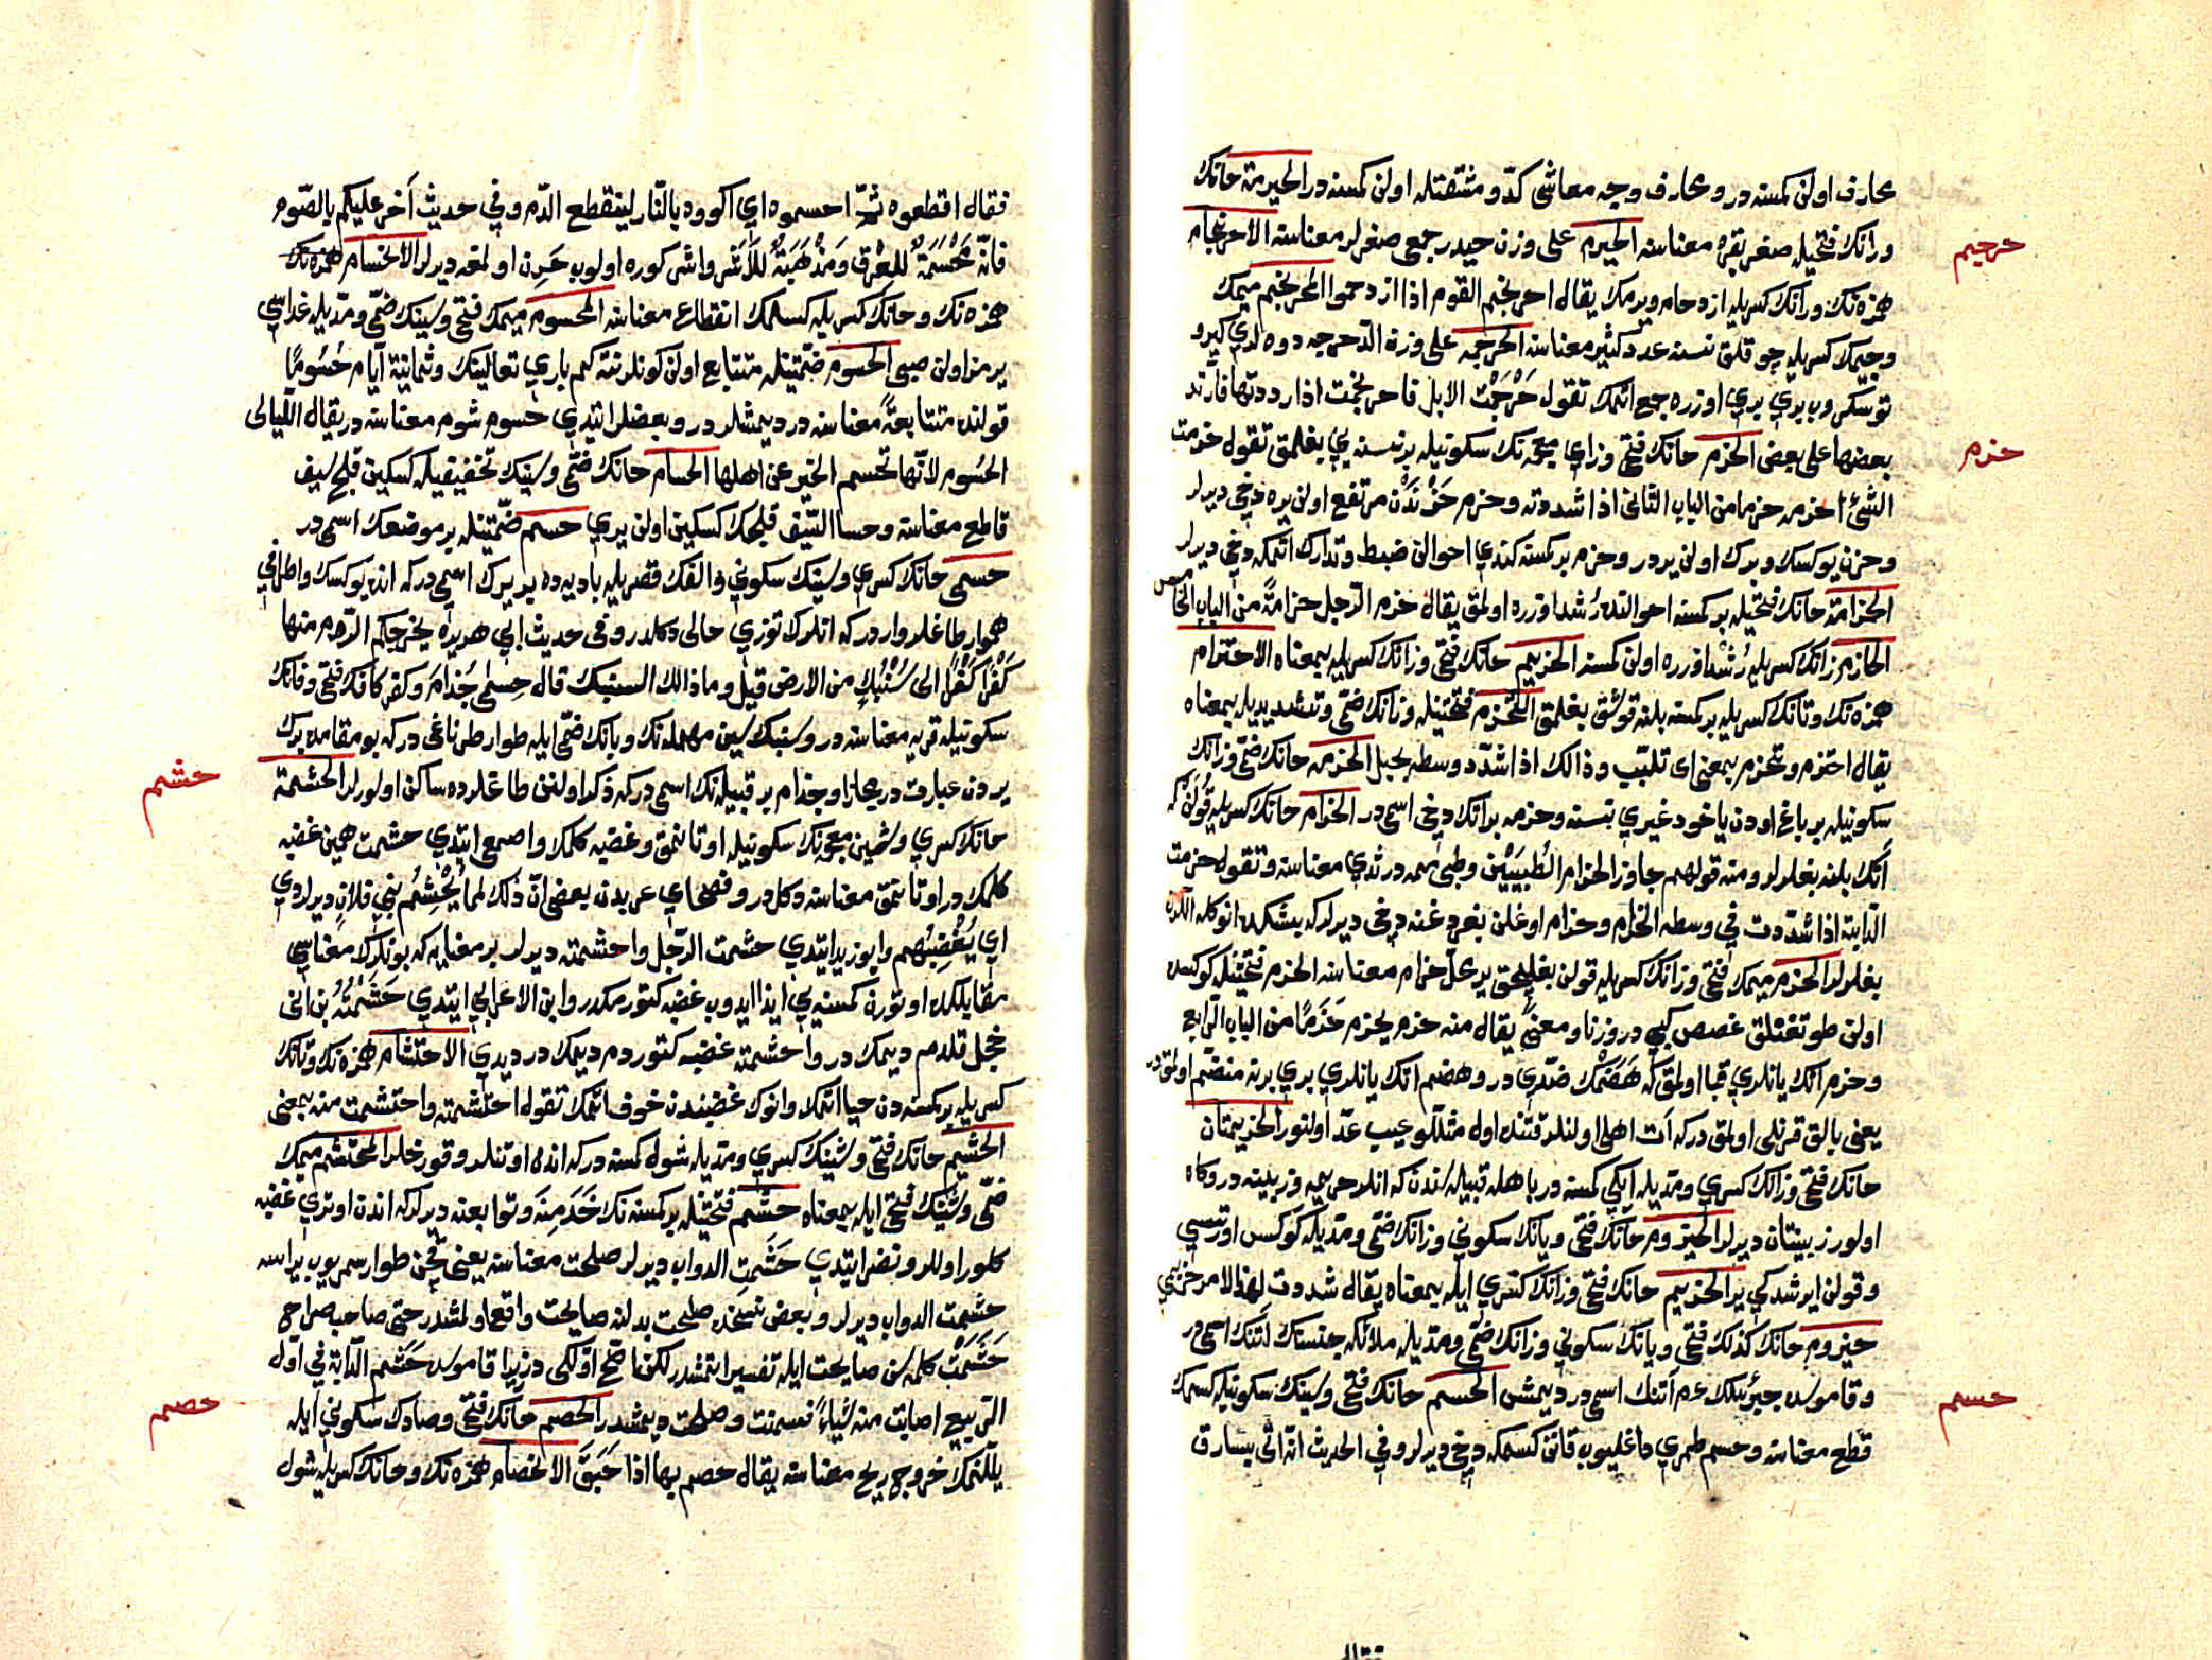 محارف اولن كمسنه در و محارف وجه معاشى كدّ و مشقتله اولن كمسنه در الحيرمة حانك
ورانك فتحيله صغر بقره معناسنه الحيرم على وزن حيدر جمع صغرلر معناسنه الاحرنجام
حرجم
همزه نك ورانك كسريله ازدحام ويرمك يقال احرنجم القوم اذا ازدحموا المحرنجم ميمك
وجيمك كسريله چوقلق نسنه عدد كثير معناسنه الحرجمه على وزنة الدّحرجه دوه لري كيرو
توسكروب بري بري اوزره جمع اتمك تقول حَرْجَمْت الابل فاحرنجمت اذا رددتها فارتد
بعضها على بعض الحزم حانك فتحى وزاى معجمه نك سكونيله بر نسنه يي بغلمق تقول حزمت
حزم
الشئ احزمه حزما من الباب الثانى اذا شددته وحزم حَزْن دَن مرتفع اولن يره دخى ديرلر
وحزن يوكسك و برك اولن يردر وحزم بر كمسنه كندي احوالن ضبط وتدارك اتمكه دخى ديرلر
الحزامة حانك فتحيله بر كمسنه احوالنده رُشد اوزره اولمق يقال حزم الرّجل حزامةً من الباب الخامس
الحازم زانك كسريله رُشد اوزره اولن كمسنه الحزيم حانك فتحى وزانك كسريله بمعناه الاحتزام
همزه نك وتانك كسريله بر كمسنه بلنه قوشق بغلمق التّحزم فتحتينله وزانك ضمّى وتشديديله بمعناه
يقال احتزم وتحزم بمعنى اى تلبّب وذالك اذا شدّد وسطه بحبل الحزمه حانك ضمّى وزانك
سكونيله بر باغ اودن ياخود غيري نسنه وحزمه بر اتك دخى اسمى در الحزام حانك كسريله قُولَن كه
آنك بلنه بغلرلر ومنه قولهم جاوز الحزام الطُبيَيْن وطبى ممه در ثدي معناسنه وتقول حزمت
الدّابة اذا شدّدت في وسطه الحزام وحزام اوغلن بغردغنه دخى ديرلر كه بيشكده انوكله
بغلرلر الحزم ميمك فتحى وزانك كسريله قولن بغليجق ير محلّ حزام معناسنه الحزم فتحتينله كوكسده
اولن طوتقنلق غصص كبي در وزنا ومعنىً يقال منه حزم يحزم حَزَمًا من الباب الرّابع
وحزم اتك يانلري قبا اولمق كه هَضَمْك ضدّى در وهضم اتك يانلري بري برنه منضم اولمقدر
يعنى بالق قرنلى اولمق دركه اَت اهلى اولنلر قتنده اول مثللو عيب عدّ اولنور الحزيمتان
حانك فتحى وزانك كسري ومدّيله ايكي كمسنه در باهله قبيله سندن كه انلر حزيمه وزبينه در وكاه
اولور زبينتان ديرلر الحيزوم حانك فتحى ويانك سكوني وزانك ضمّى ومدّيله كوكس اورتسي
وقولن ايرشدكي ير الحزيم حانك فتحى وزانك كسري ايله بمعناه يقال شددت لهذا الامر حزيمي
حيزوم حانك كذلك فتحى ويانك سكوني وزانك ضمّى ومدّيله ملائكه جنسنك اتنك اسمى در
وقاموسده جبرئيلك عم اتنك اسمى در ديمش الحسم حانك فتحى وسينك سكونيله كسمك
حسم
قطع معناسنه وحسم طمري داغليوب قانن كسمكه دخى ديرلر وفي الحديث انه اتى بسارق
فقال
فقال اقطعوه ثمّ احسموه اي اكووه بالنّار لينقطع الدّم وفي حديث آخر عليكم بالصّوم
فانّه مَحْسَمَةٌ للعِرْق وَمَذْهَبَةٌ للأَشَر واشر كوره اولوب حَرِن اولمغه ديرلر الانحسام همزه نك
همزه نك وحانك كسريله كسلمك انقطاع معناسنه المحسوم ميمك فتحى وسينك ضمّى ومدّيله غداسي
يرمز اولن صبى الحسوم ضمّتينله متتابع اولن كونلرنته كيم باري تعالينك وثمانية آيّام حُسُومًا
قولنده متتابعةً معناسنه در ديمشلردر و بعضلر ايتدي حسوم شوم معناسنه در يقال اللّيالى
الحُسُوم لانّها تحسم الخير عن اهلها الحسام حانك ضمّى وسينك تخفيفيله كسكين قلج سيف
قاطع معناسنه وحسام السّيف قلجك كسكين اولن يري حسم ضمّتينله بر موضعك اسمى در
حسمى حانك كسري وسينك سكوني والفك قصريله باديه ده بر يرك اسمى در كه انده يوكسك واطرافي
هموار طاغلر واردر كه انلرك توزي حالى دكلدر وفى حديث ابي هريره يخرجكم الرّوم منها
كَفْرًا كَفْرًا الى سُنْبُكٍ من الارض قيل وما ذالك السنبك قال حِسمى جُذامَ وكفر كافك فتحى وفانك
سكونيله قريه معناسنه در وسنبك سين مهمله نك و بانك ضمّى ايله طوار طرناغى در كه بو مقامده برك
يردن عبارت در مجازا وجذام بر قبيله نك اسمى در كه ذكر اولنن طاغلرده ساكن اولورلر الحشمة
حشم
حانك كسري وشين معجمه نك سكونيله اوتانمق وغضبه كلمك واصمعى ايتدي حشمت همين غضبه
كلمك در اوتانمق معناسنه دكل در وفصحاي عربدن بعضى انّ ذلك لمما يُحْشِمُ بني فلان ديرلردي
اي يُغْضِبُهم وابو زيد ايتدي حشمت الرّجل واحشمته ديرلر بر معنايه كه بونلرك معناسي
مقابلكده اوتورن كمسنه يي ايذا ايدوب غضبه كتورمكدر وابن الاعرابي ايتدي حَشَمْتُهُ بن انى
خجل قلدم ديمك در واحشمته غضبه كتوردم ديمك در ديدي الاحتشام همزه نك وتانك
كسريله بر كمسنه دن حيا اتمك وانوك غضبندن خوف اتمك تقول احتشمته واحتشمت منه بمعنى
الحشيم حانك فتحى وشينك كسري ومدّيله شول كمسنه در كه اندن اوتنلر و قورخلر المحتشم ميمك
ضمّى وشينك فتحى ايله بمعناه حشم فتحتينله بر كمسنه نك خَدَمِنَه وتوابعنه ديرلر كه اندن اوتري غضبه
كلور اوللر ونضر ايتدي حَشَمتِ الدواب ديرلر صلحت معناسنه يعنى قچن طوار سمريوب يراسه
حشمت الدواب ديرلر و بعض نسخه ده صلحت بدلنه صايحت واقع اولمشدر حتى صاحب صراح
حَشَمَتْ كلمه سن صايحت ايله تفسير اتمشدر لكن اصح اوّلكى در زيرا قاموسده حَشَم الدّابة في اوّل
الرّبيع اصابت منه شياءً فسمنت وصلحت ديمشدر الحصم حانك فتحى وصادك سكوني ايله
حصم
يللنمك خروج ريح معناسنه يقال حصم بها اذا حَبَقَ الانحصام همزه نك وحانك كسريله شول